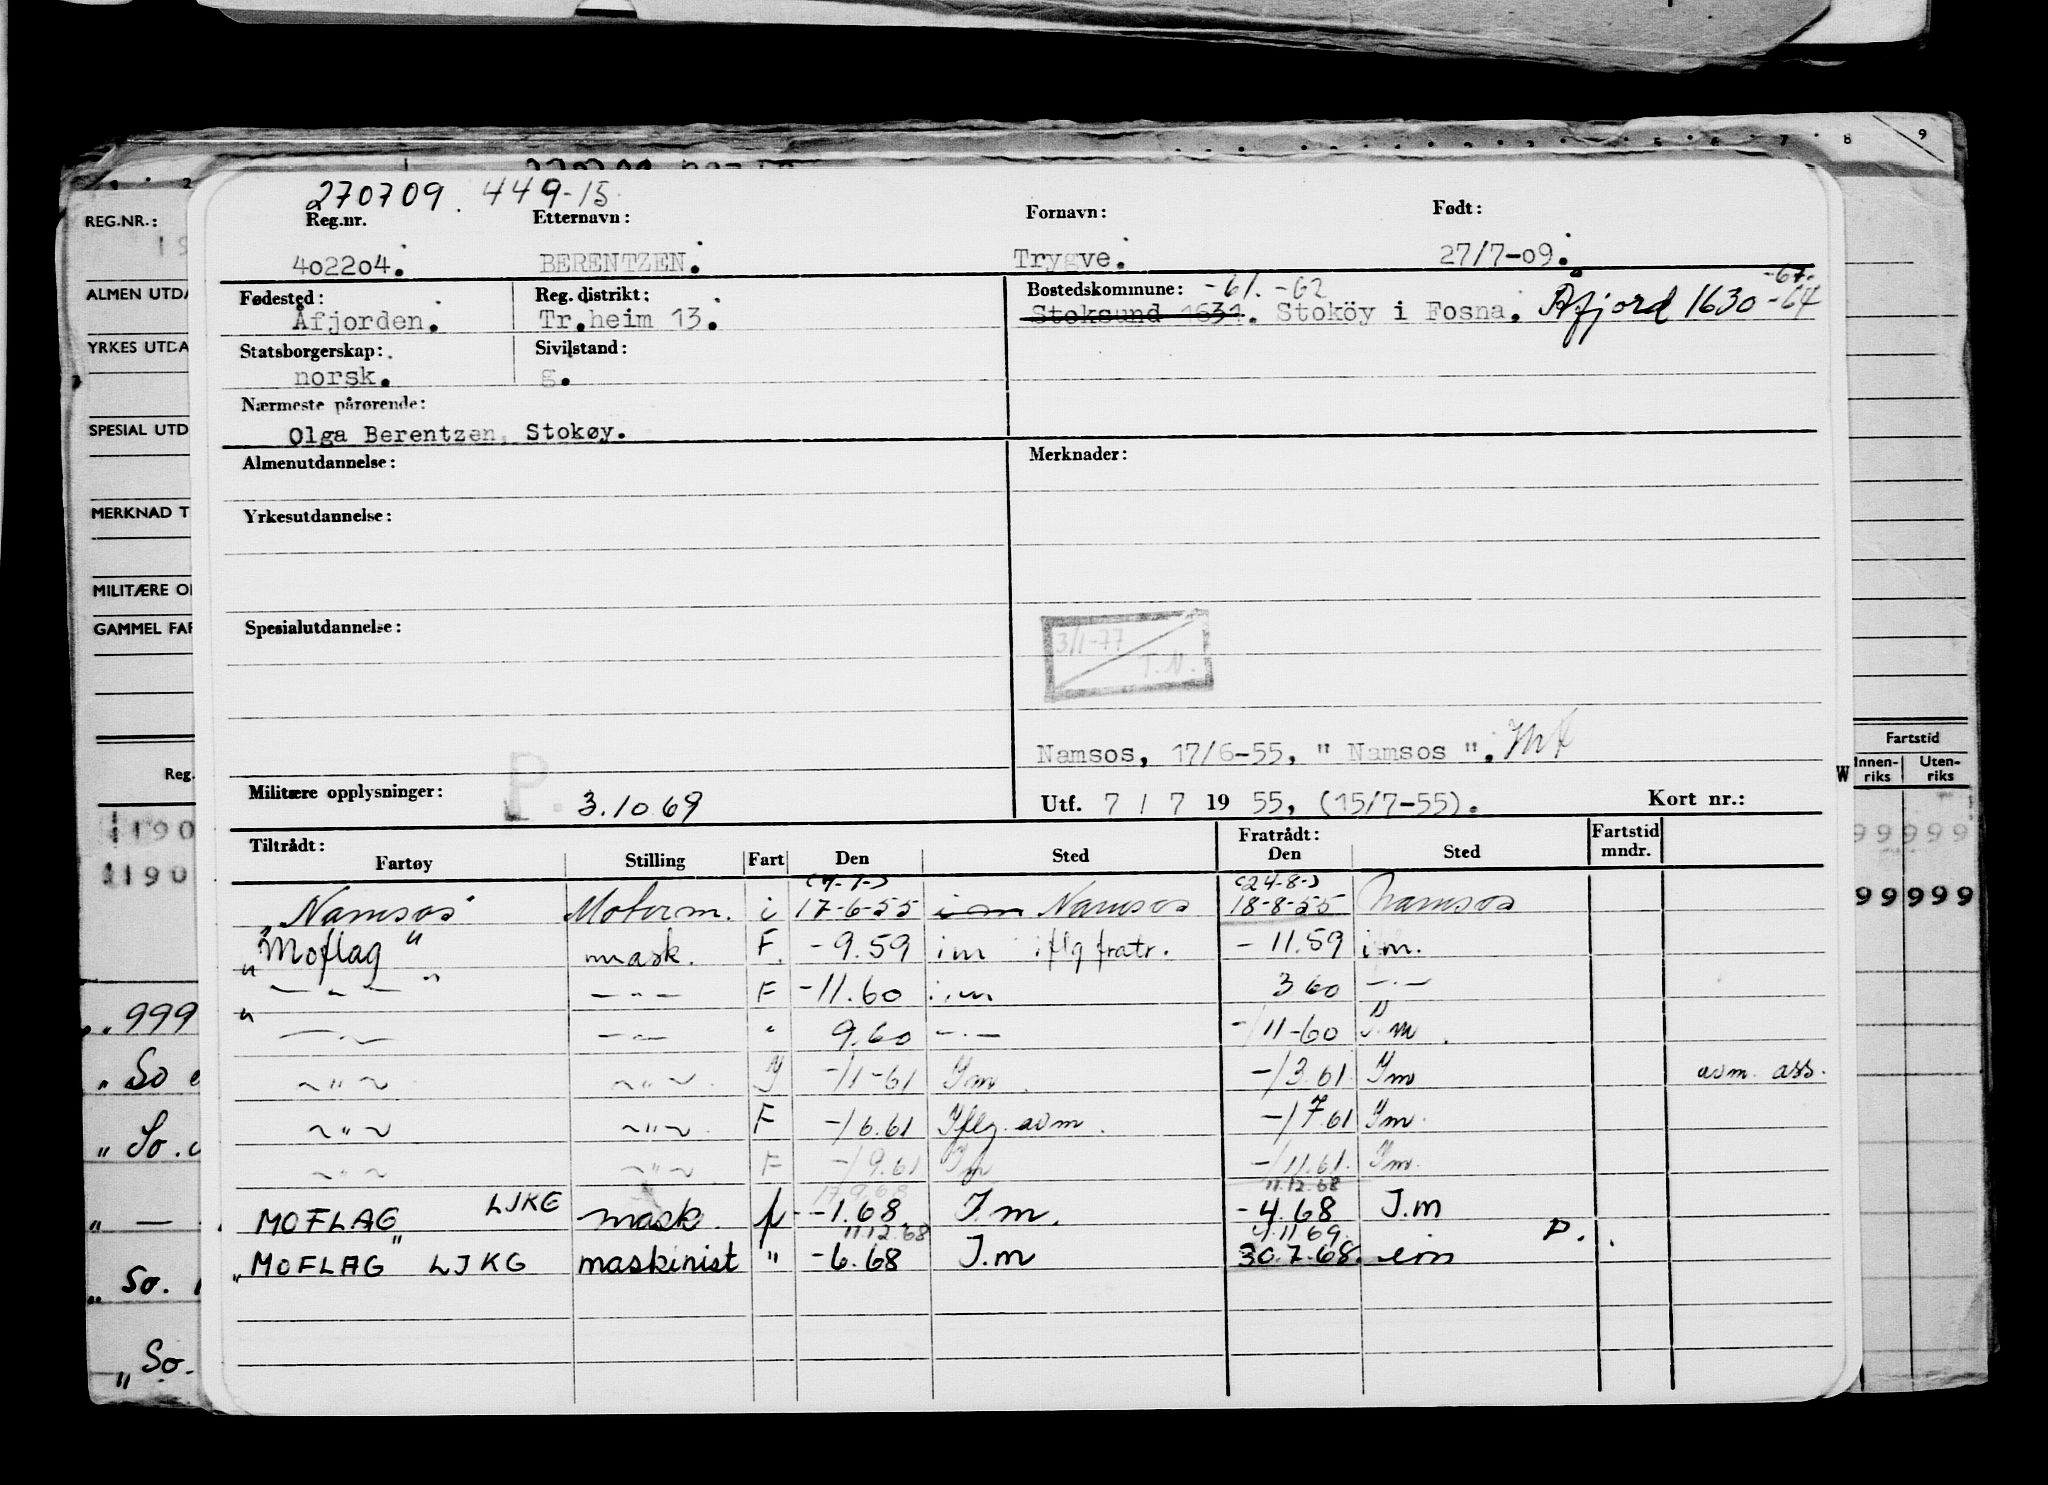 9
8
REG.NR.:
270709. 449-15.
Reg.nr. Etternavn: Fornavn: Født:
402204. BERENTZEN. Trygve. 27/7-09.
ALMEN UTDA
Fødested: Reg. distrikt: Bostedskommune: -61. -62 -67.
Åfjorden. Tr.heim 13. Stoksund 1631. Stoköy i Fosna. Åfjord 1630 -64
YRKES UTDA
Statsborgerskap: Sivilstand:
norsk. g.
Nærmeste pårørende:
SPESIAL UTD
Olga Berentzen, Stokøy.
Almenutdannelse: Merknader:
MERKNAD T
Yrkesutdannelse:
MILITÆRE O
GAMMEL FAR
Spesialutdannelse:
3/1-77
T.N.
Namsos, 17/6-55, " Namsos ".
Fartstid
Innen-riks Uten-riks
Reg.
Militære opplysninger: P. 3.10.69 Utf. 7 / 7 19 55, (15/7-55). Kort nr.:
Tiltrådt: Fratrådt: Fartstid mndr.
Fartøy Stilling Fart Den Sted Den Sted
(7-7-) (24-8-)
"Namsos" Motorm. i 17-6-55 im Namsos 18-8-55 Namsos
"Moflag" mask. F. -9.59 im iflg fratr. -11.59 im.
" — " — " — " — F -11.60 im 3 60 — " —
" — " — — " — " 9.60 — " — -/11-60 I.m.
~ " ~ ~ " ~ -/1-61 Im -/3.61 Im avm. ass.
~ " ~ ~ " ~ F -/6.61 Iflg. avm. -/7 61 Im.
~ " ~ ~ " ~ F -/9.61 Im -/11.61. Im.
17.9.68 11.12.68
MOFLAG" LJKG mask. -1.68 I.m. -4.68 I.m
11.12.68 4.11 69.
"MOFLAG LJKG maskinist " -6.68 I.m 30.7.68. P.